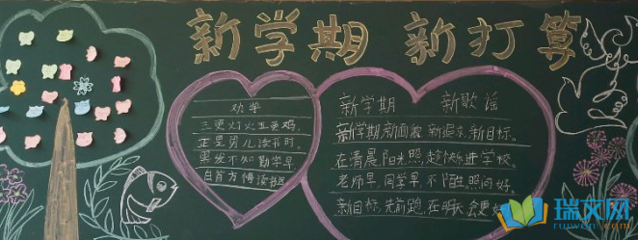 新学期 新打算
劝学
三更灯火五更鸡,
正是男儿读书时。
黑发不知勤学早,
白首方悔读书迟
新学期 新歌谣
新学期,新面貌,新起点,新目标。
在清晨,阳光照,趁快进学校。
老师早,同学早,不陌生,照问好。
新目标,先前跑,在明天,会更
瑞文网
ruiwen.com